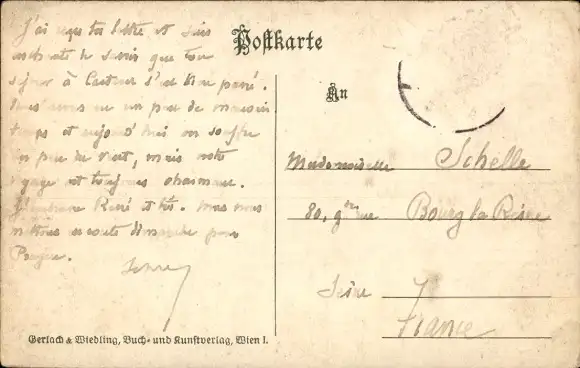 Postkarte
An
J'ai reçu ta lettre et suis
enchanté de savoir que ton
séjour à s'est bien passé.
Nous avons eu un peu de mauvais
temps et aujourd'hui on souffre
un peu du vent, mais notre
voyage est toujours charmant.
J'embrasse René et toi. Nous nous
mettons en route dimanche pour
Prague.
Mademoiselle Schelle
80, gde rue Bourg la Reine
Seine
France
Gerlach & Wiedling, Buch- und Kunstverlag, Wien I.